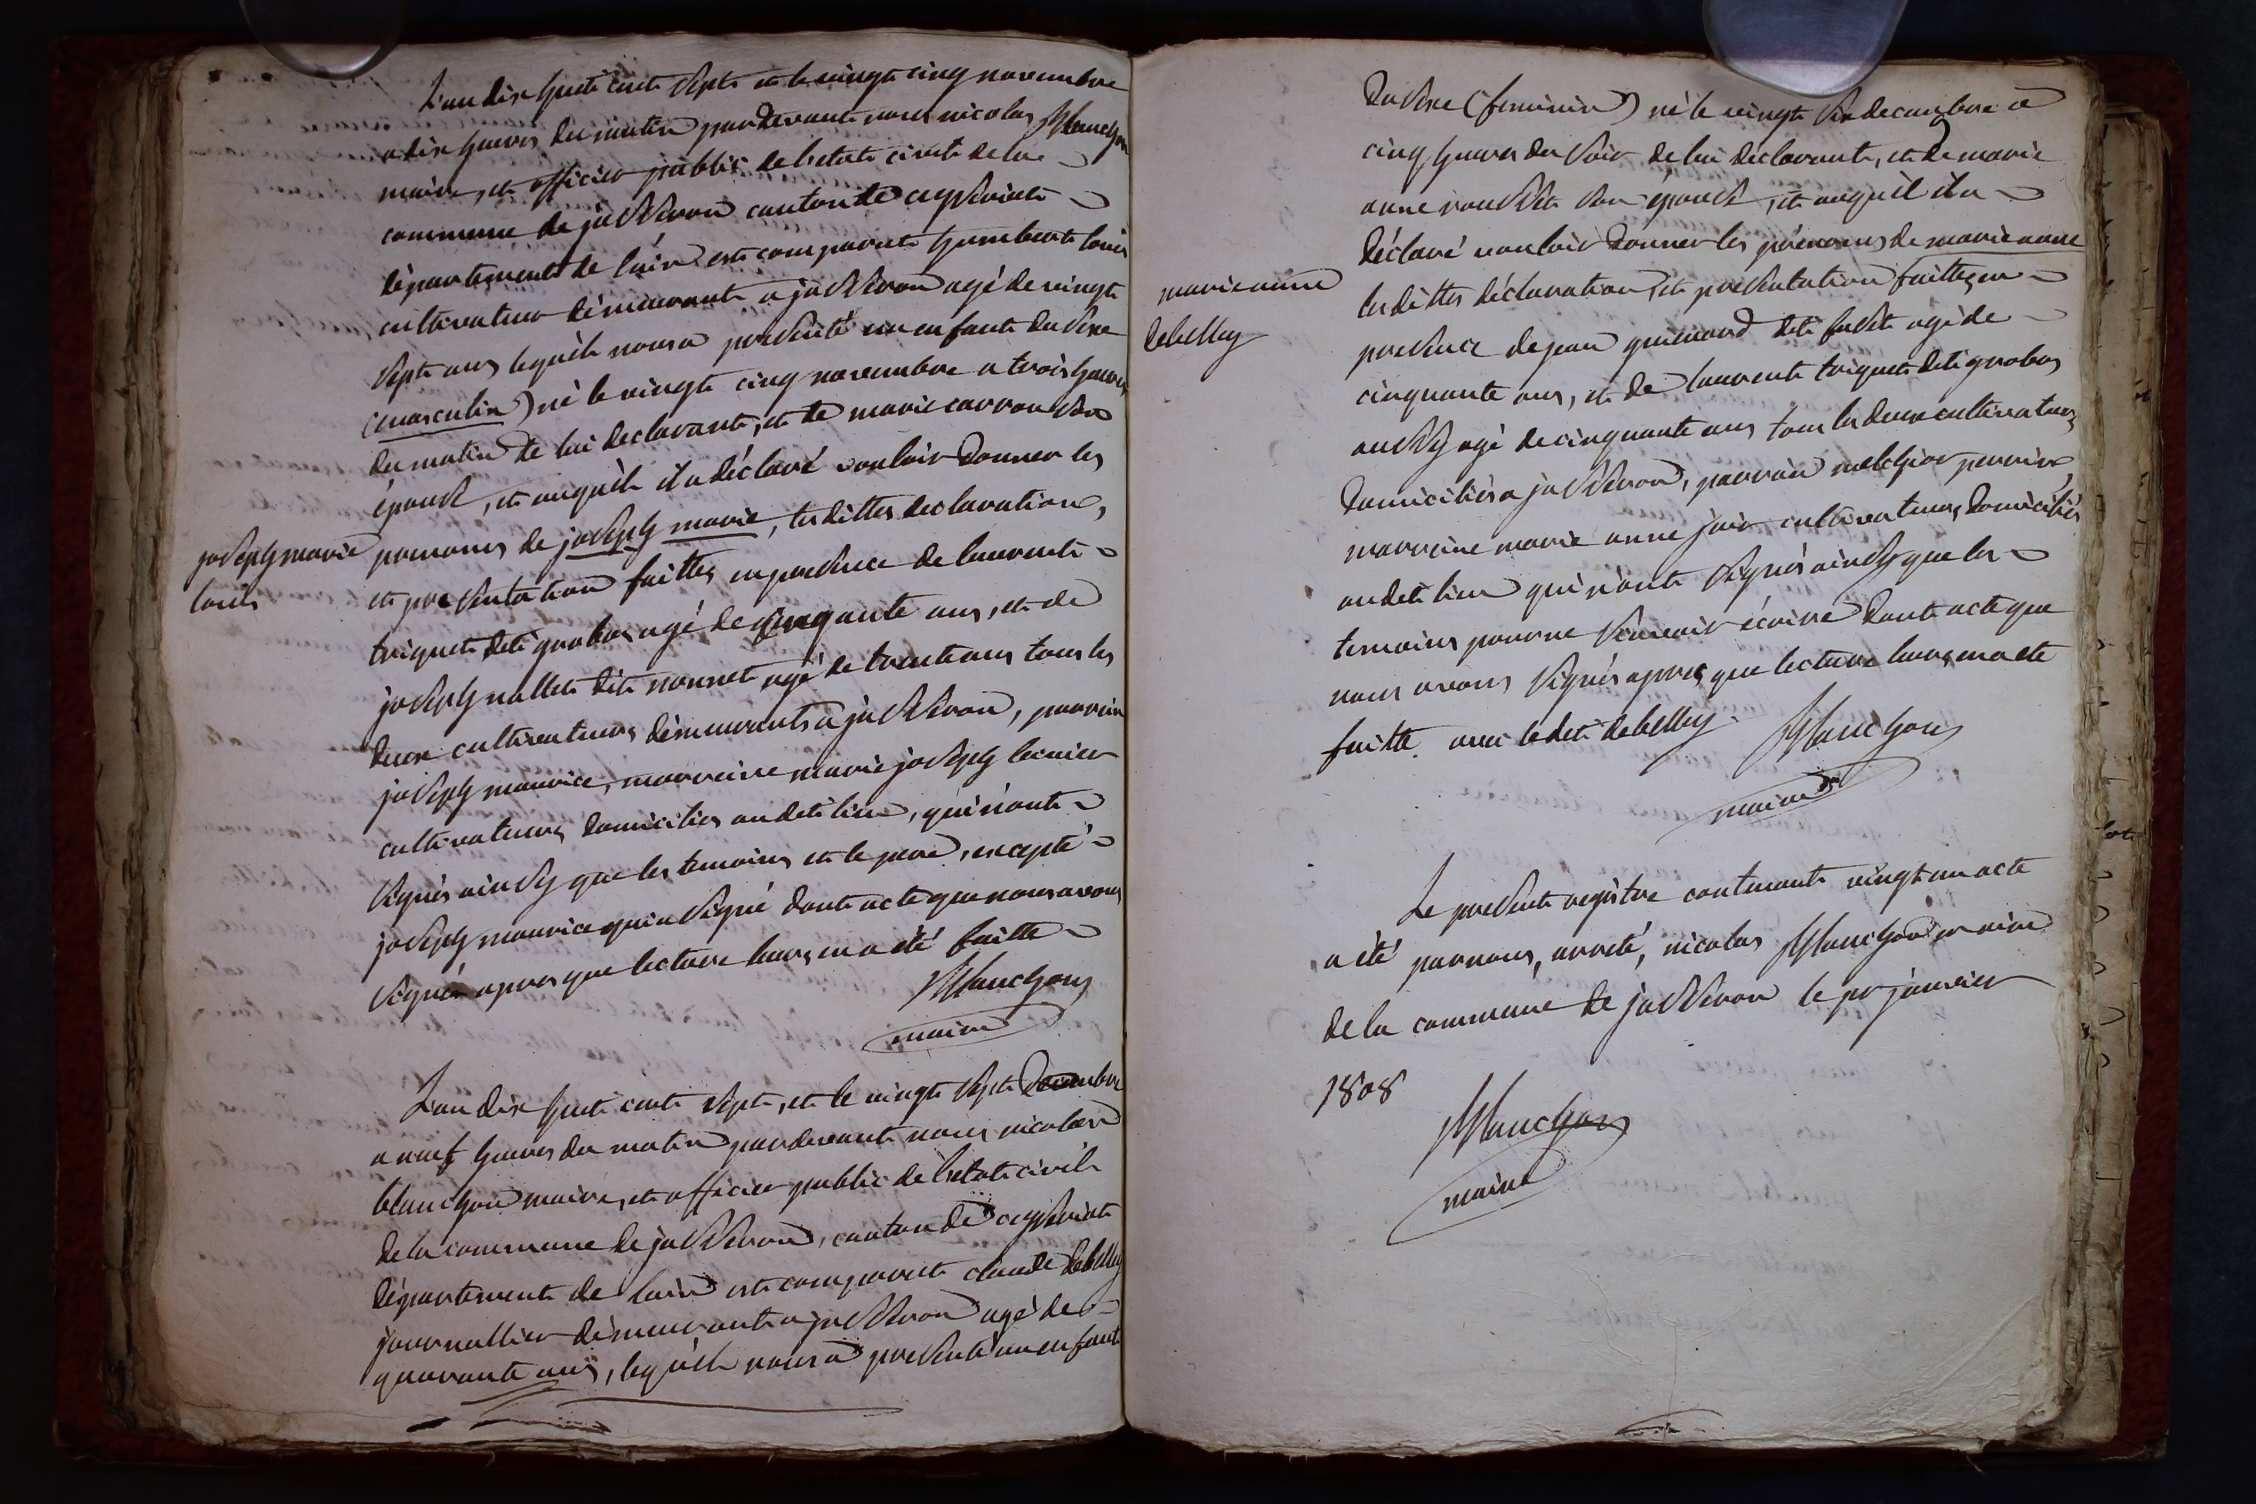 L'an dix huit cent sept et le vingt cinq novembre
a dix heures du matin pardevant nous nicolas Blanchon
maire, et officier public de l'etat civil de la
commune de jasseron canton de ceyseriat
département de l'ain est comparut humbert louis
cultivateur démeurant a jasseron agé de vingt
sept ans lequèl nous a presenté un enfant du sexe
(masculin) né le vingt cinq novembre a trois heures
du matin de lui declarant, et de marie carron son
épouse, et auquèl il a déclaré vouloir donner les
prenoms de joseph marie, les dittes declaration,
joseph marie
louis
et presentation faittes en presence de laurent
triquet dit grobas agé de cinqante ans, et de
joseph nallet dit nonnet agé de trente ans tous les
deux cultivateurs démeurants a jasseron, parrain
joseph maurice, marreine marie joseph
cultivateurs domicilies audit lieu, qui n'ont
signés ainsy que les temoins et le pere, excepté
joseph maurice qui a signé dont acte que nous avons
signés apres que lecture leurs en a été faitte
Blanchon
maire
L'an dix huit cent sept, et le vingt sept Decembre
a neuf heures du matin pardevant nous nicolas
blanchon maire, et officier public de l'etat civil
de la commune de jasseron, canton de ceyseriat
département de l'ain est comparut claude debelley
journallier démeurant a jasseron agé de
quarante ans, lequèl nous a presenté un enfant
du sexe (feminin) né le vingt six decembre a
cinq heures du soir de lui declarant, et de marie
anne rousset son épouse, et auquèl il a
déclaré vouloir donner les prénoms de marie anne
marie anne
debelley
les dittes déclaration, et presentation faittes en
presence de jean guinard dit agé de
cinquante ans, et de laurent triquet dit grobas
aussy agé de cinquante ans tous les deux cultivateurs
domiciliés a jasseron, parrain melchior perrin
marreine marie anne cultivateurs, domiciliés
audit lieu qui n'ont signés ainsy que les
temoins pour ne scavoir écrire dont acte que
nous avons signés apres que lecture leurs en a ete
faitte avec ledit debelley.
Blanchon
maire
Le present registre contenant vingt un acte
a été par nous, arreté, nicolas Blanchon maire
de la commune de jasseron le pr janvier
1808
Blanchon
maire